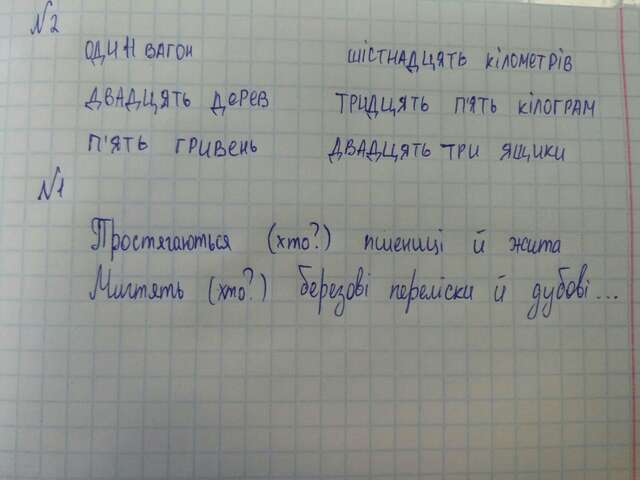 №2
ОДИН ВАГОН ШІСТНАДЦЯТЬ КІЛОМЕТРІВ
ДВАДЦЯТЬ ДЕРЕВ ТРИДЦЯТЬ П'ЯТЬ КІЛОГРАМ
П'ЯТЬ ГРИВЕНЬ ДВАДЦЯТЬ ТРИ ЯЩИКИ
№1
Простягаються (хто?) пшениці й жита
Мигтять (хто?) березові переліски й дубові...